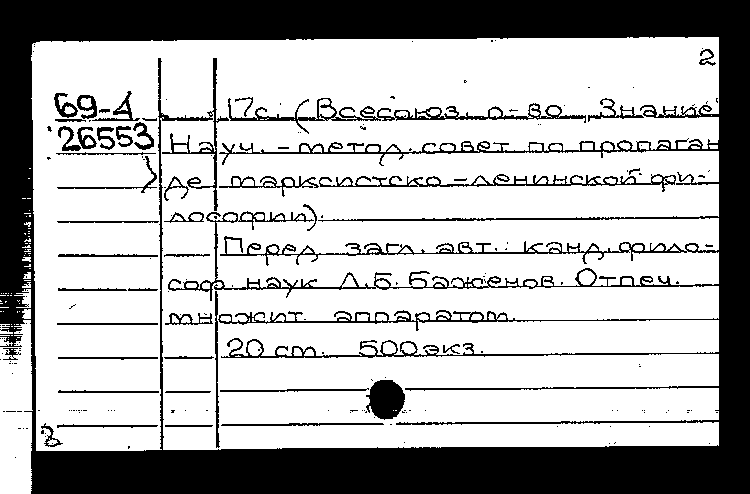 2
69-4 17с. (Всесоюз. о-во „Знание"
26553 Науч.-метод. совет по пропаган
де марксистско-ленинской фи-
лософии).
Перед загл. авт.: канд. фило-
соф. наук Л.Б. Баженов. Отпеч.
множит. аппаратом.
20 см. 500 экз.